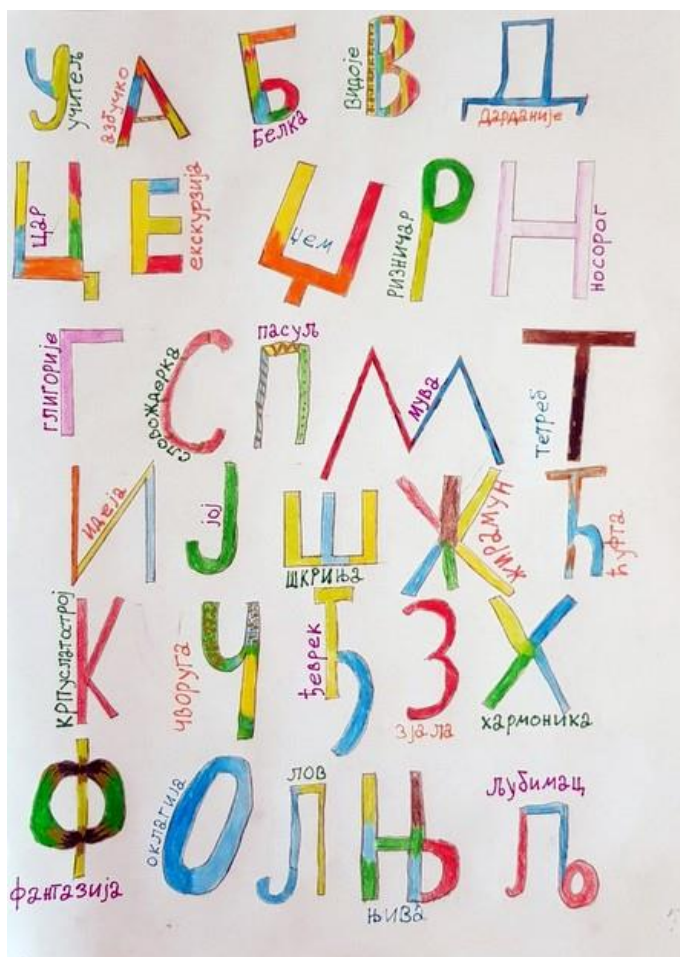 У учитељ
А азбучко
Б Белка
В Видоје
Д Дарданије
Ц цар
Е екскурзија
Џ џем
Р ризничар
Н носорог
Г Глигорије
С словождерка
П пасуљ
М мува
Т тетреб
И идеја
Ј јој
Ш шкриња
Ж жирамун
Ћ ћуфта
К крпуслатострој
Ч чворуга
Ђ ђеврек
З зјала
Х хармоника
Ф фантазија
О оклагија
Л лов
Њ њива
Љ љубимац